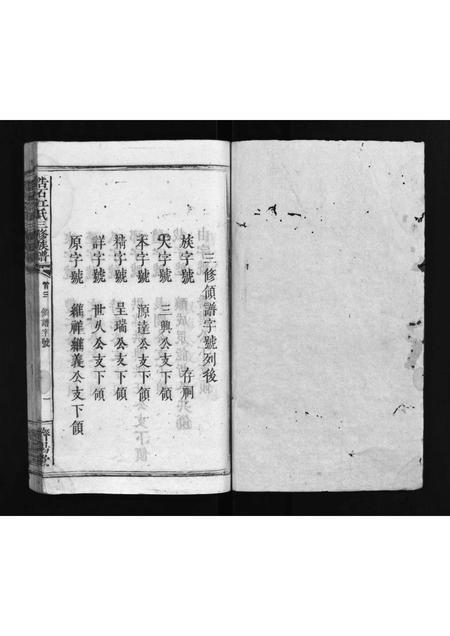 三修領譜字號列後
族字號　存祠
天字號　三興公支下領
本字號　源達公支下領
精字號　呈瑞公支下領
詳字號　世久公支下領
原字號　繼祥繼義公支下領
江氏三修族譜
首三
領譜字號
一